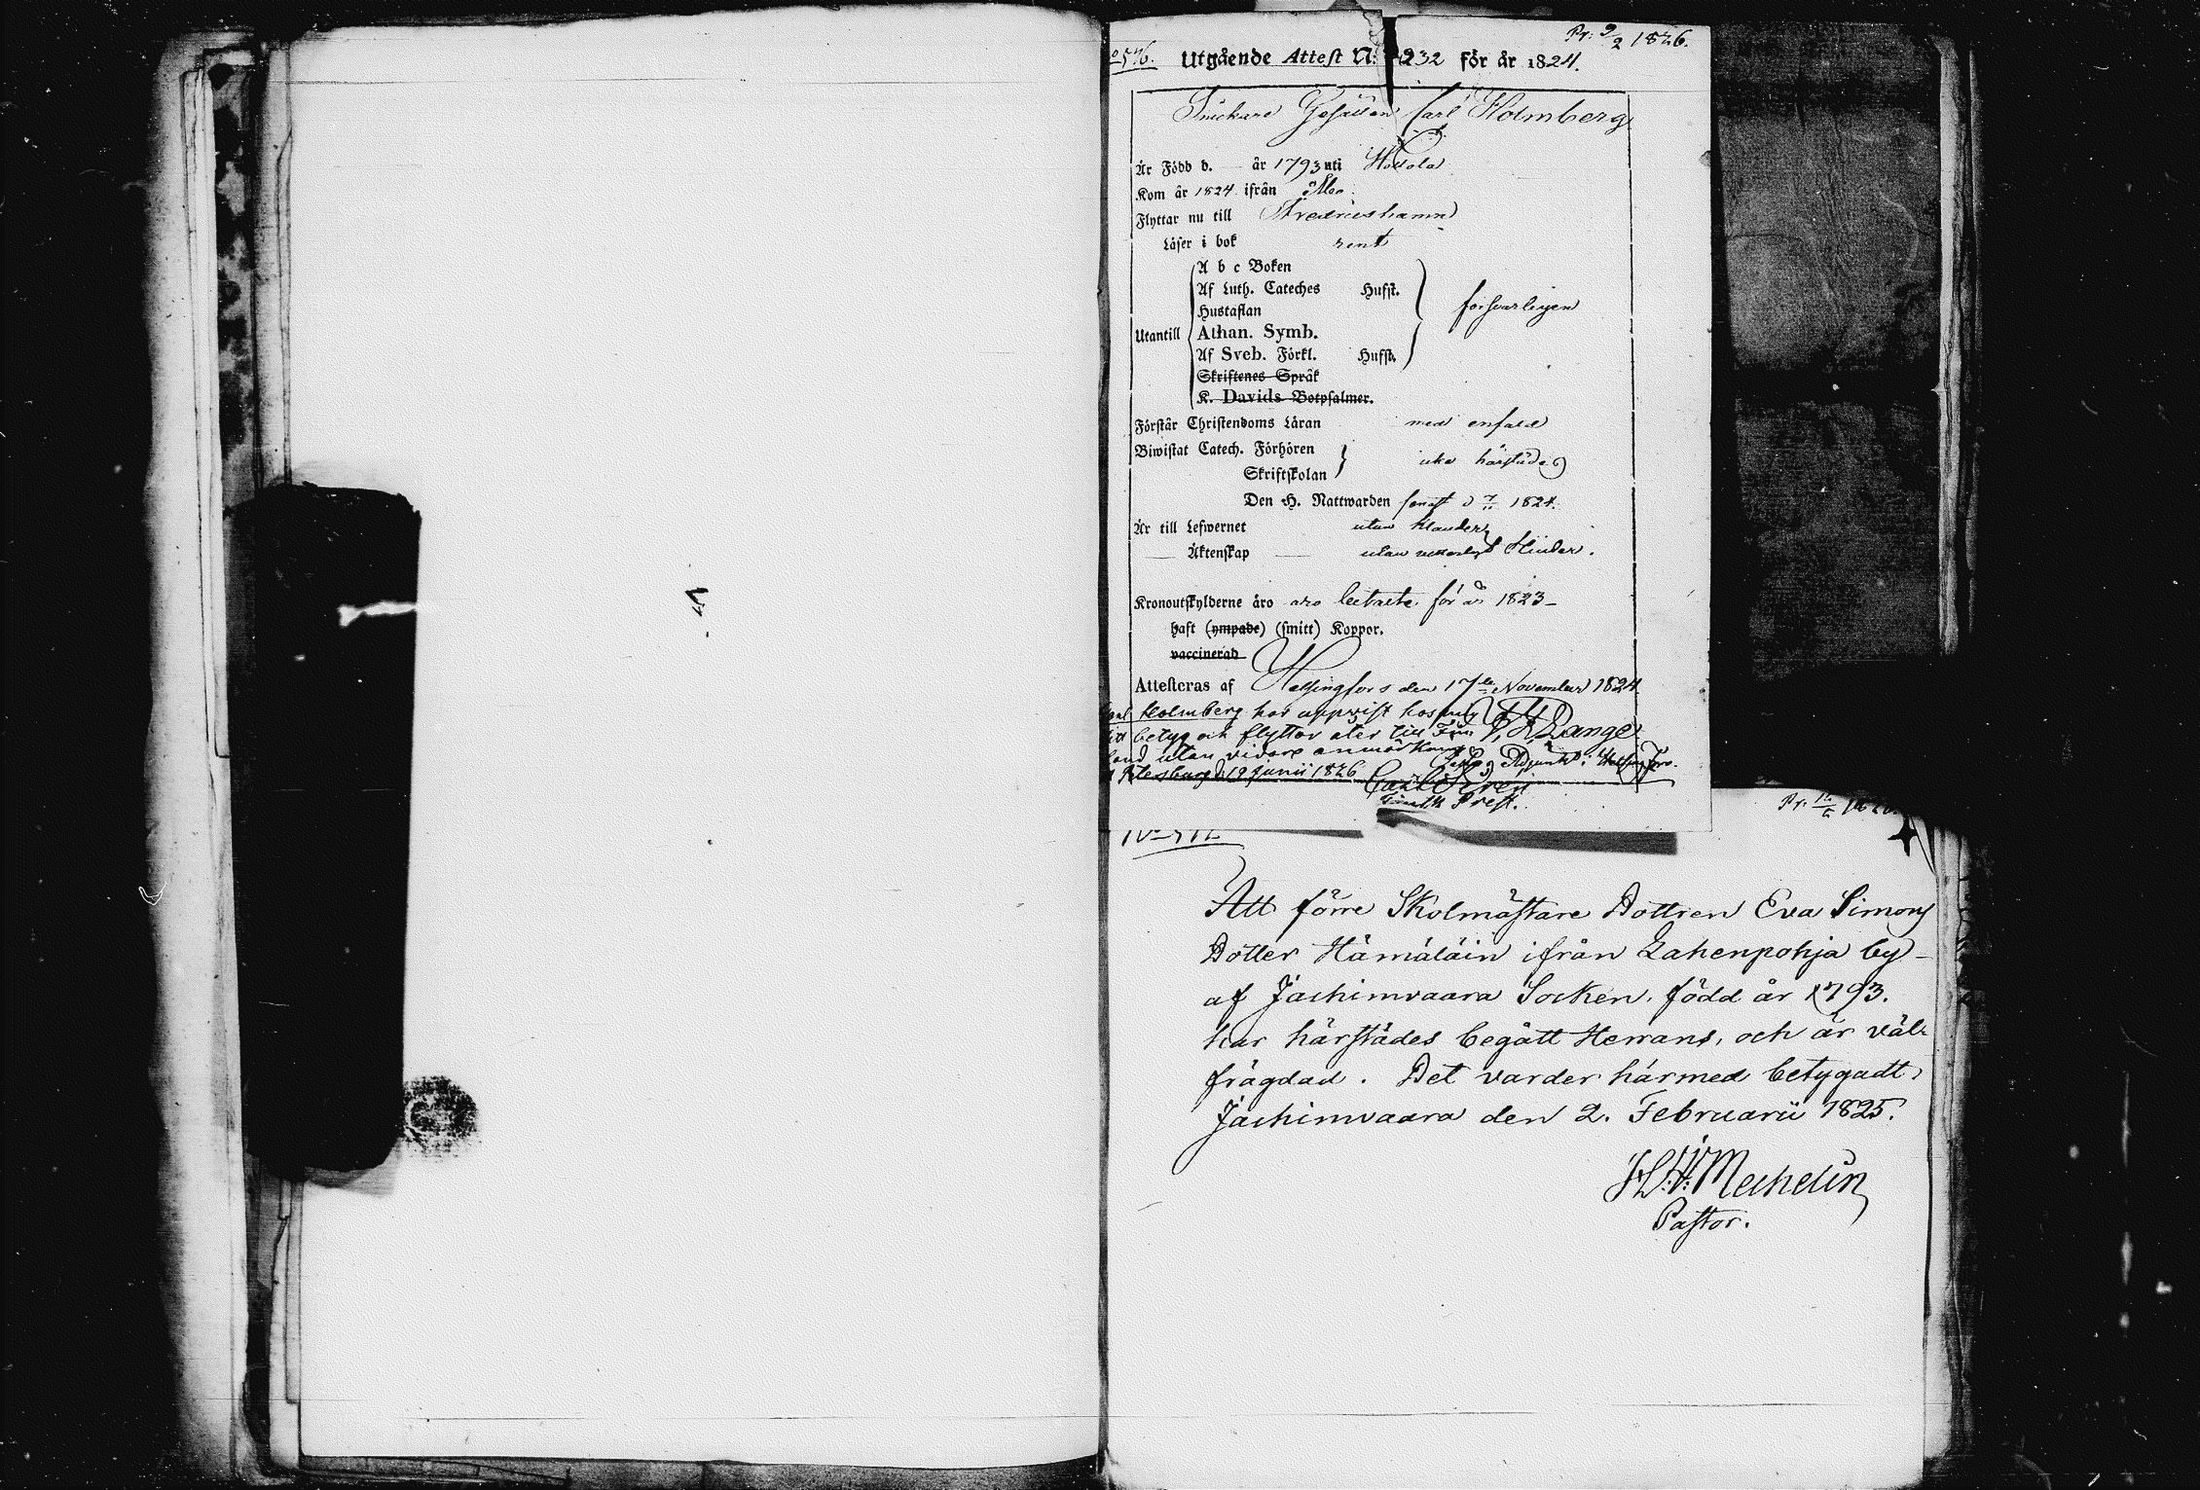 Pr: 9/2 1826.
576. Utgående Attest N: 232 för år 1824.
Snickare Gesällen Carl Holmberg
Är Född d. — år 1793 uti Hollola
Kom år 1824 ifrån Åbo
Flyttar nu till Fredricshamn
Läser i bok rent
A b c Boken
Af Luth. Cateches Hufst.
Hustaflan försvarligen
Utantill Athan. Symb.
Af Sveb. Förkl. Hufst.
Skriftenes Språk
K. Davids Botpsalmer.
Förstår Christendoms Läran med enfald
Biwistat Catech. Förhören
Skriftskolan icke härstädes
Den H. Nattwarden senast d 7/11 1824.
Är till Lefwernet utan klander
— Äktenskap — utan vetterligt Hinder.
Kronoutskylderne äro äro betalte för år 1823—
haft (ympade) (smitt) Koppor.
vaccinerad
Attesteras af Helsingfors den 17de November 1824.
Holmberg har uppvist hos mig
betyg och flyttar åter till Fin
land utan vidare anmärkning
Petersburg d. 19 junii 1826
Lange
Adjunct i Helsingfors.
Carl Sirén
Finsk Prest.
Pr:
Att förre Skolmästare Dottren Eva Simons
Dotter Hämäläin ifrån Lahenpohja by
af Jachimvaara Socken, född år 1793.
har härstädes begått Herrans, och är väl
frägdad. Det varder härmed betygadt,
Jachimvaara den 2. Februarii 1825.
Mechelin
Pastor.